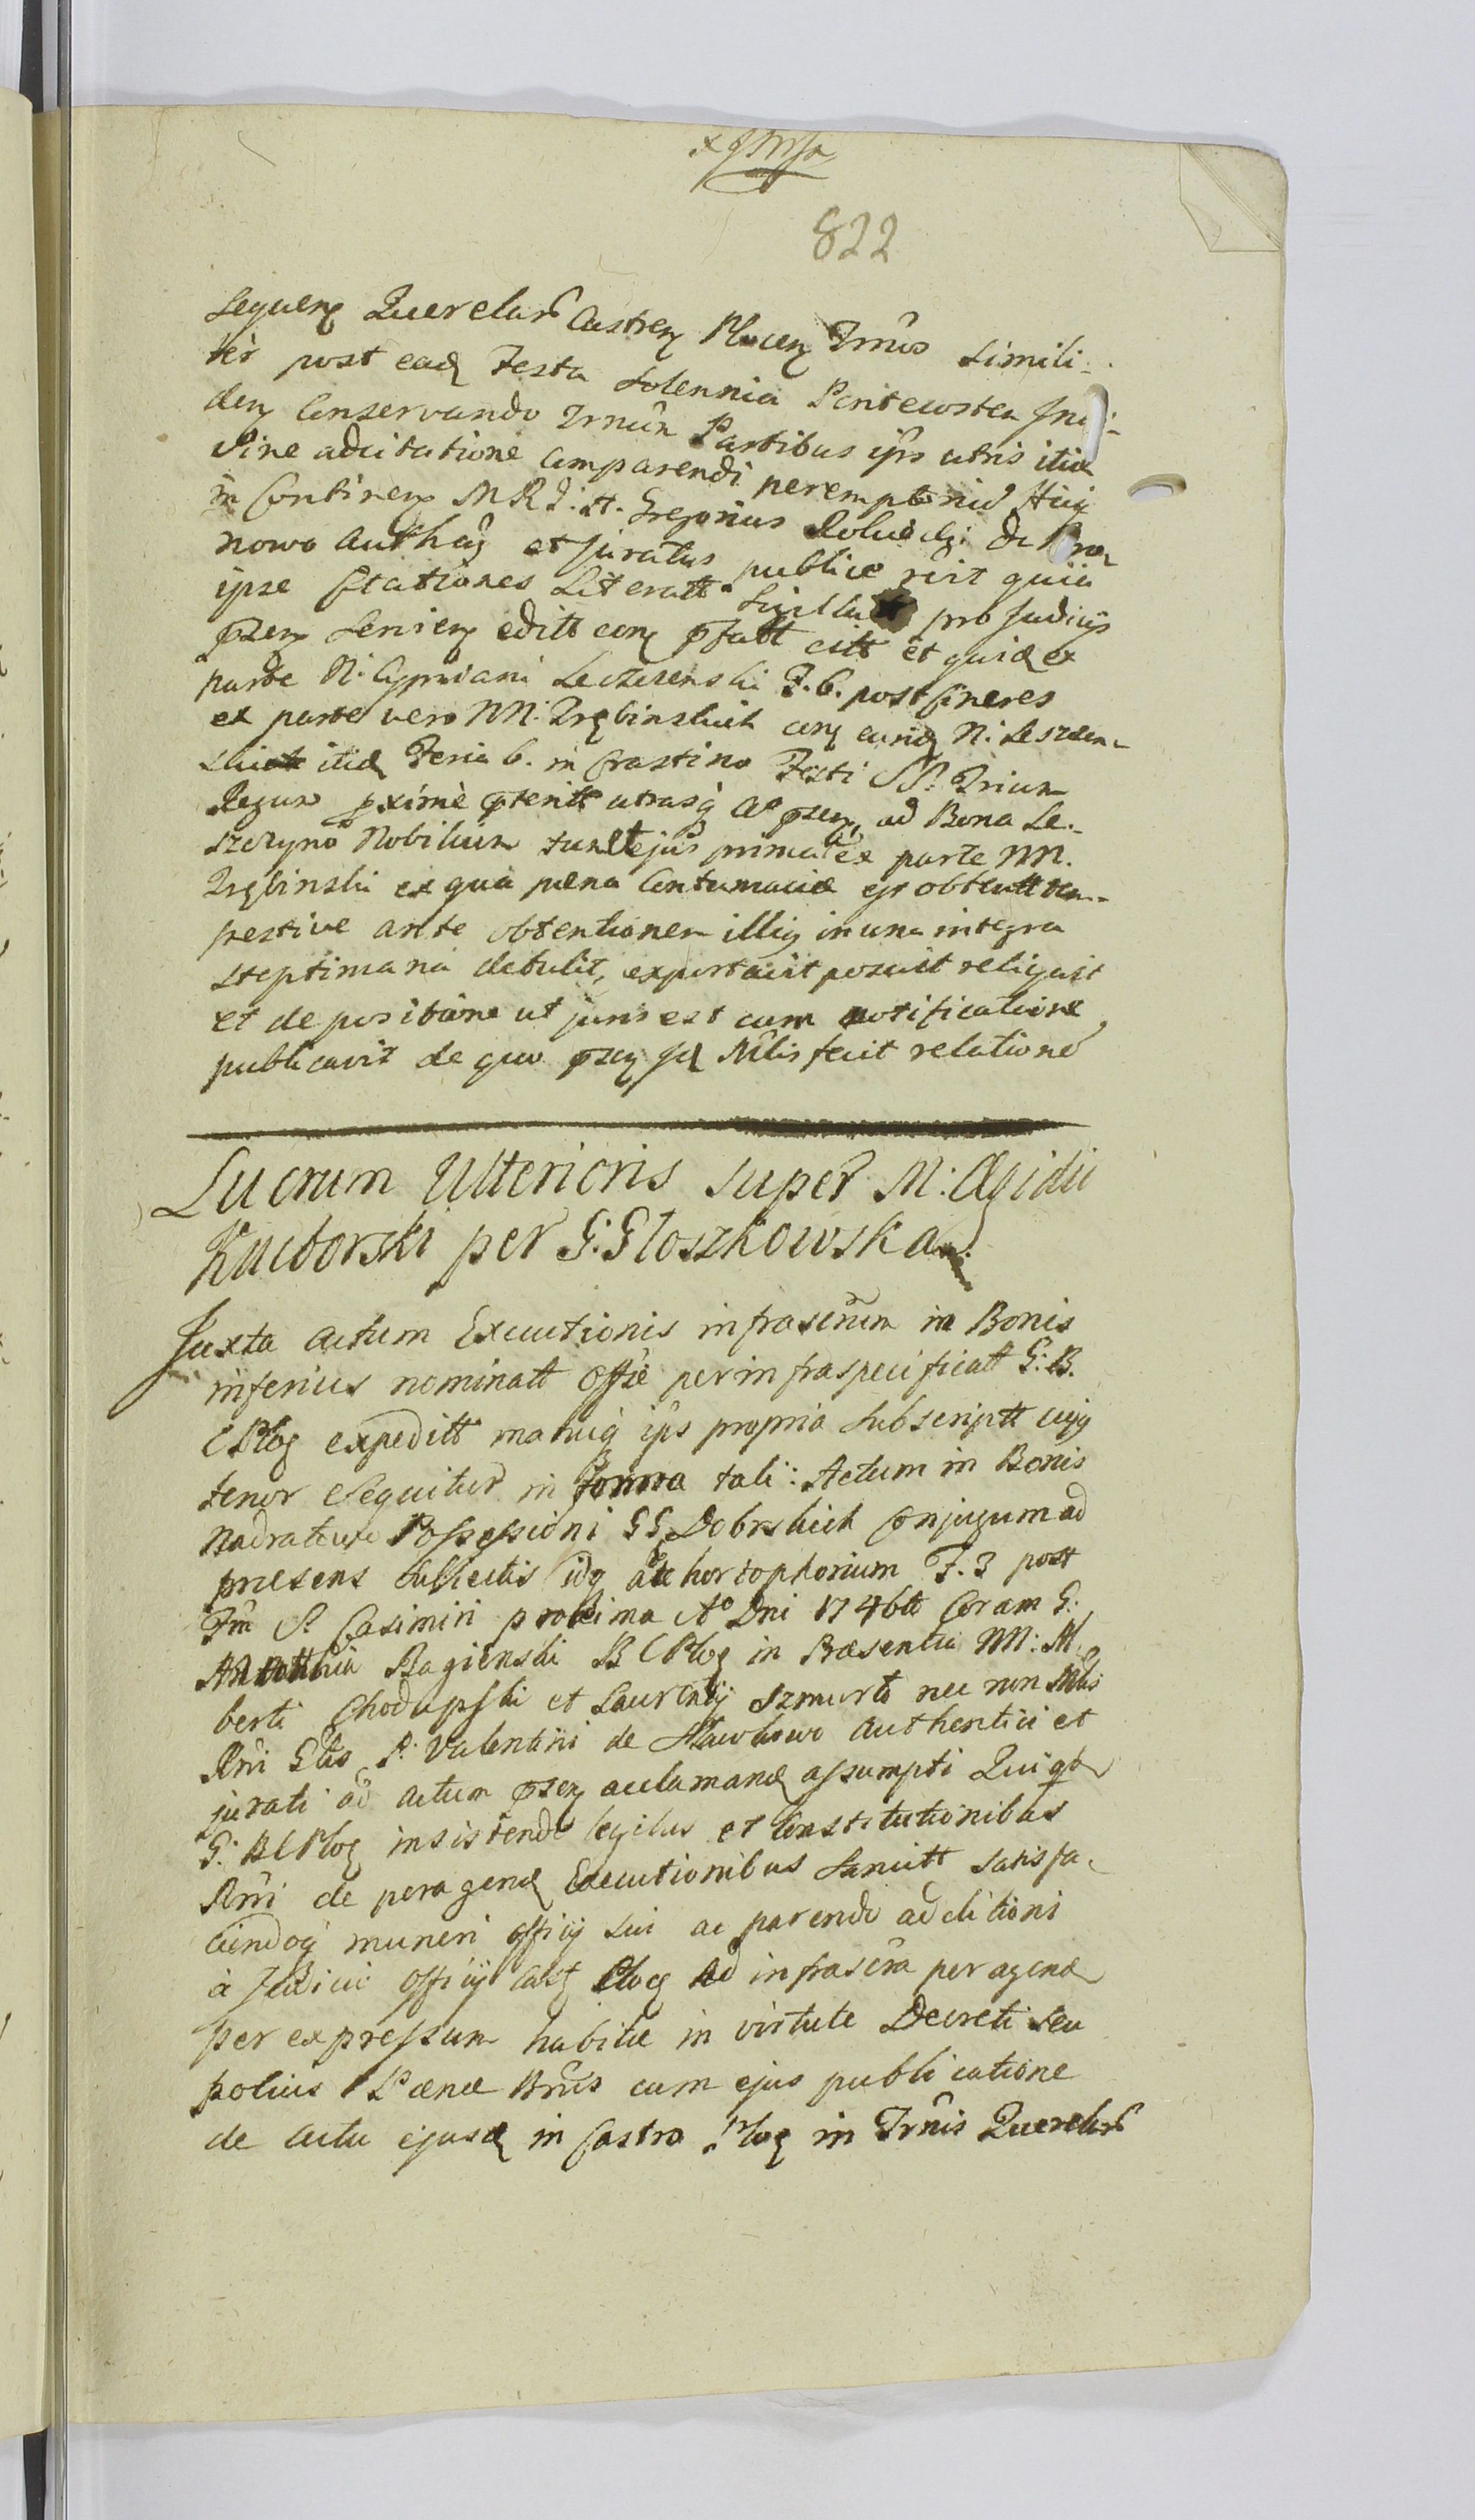 822
Sequen Querelar Castren Plocen Trnis simili-
ter post ead Festa Solennia Pentecosten Inci-
den Conservando Trnum Partibus ijs utris itid
sine adcitatione comparendi peremptorie Huij
in Continen M R J. A. Gregorius de
nowo Autheq et Juratus publice rtit quia
ipse Citationes Literatt Sigillatt pro Judicijs
pzen Servien editt cont pfatt citt et quid ex
parte N. Cypriani Leszczenski F. 6. post Cineres
ex parte vero NN. Zrębinskich con eund N. Leszczen-
skich itid Feria 6. in Crastino Festi SS. Trium
Regum pximè pteritt utrasq Ao pzen, ad Bona Le-
szczyno Nobilium tum ejus prima ex parte NN.
Zrębinski ex qua pæna Contumaciæ ejs obtentt tem-
pestive ante obtentionem illiq in una integra
septimana detulit, exportavit posuit reliquit
et de positione ut juris est cum notificatione
publicavit de quo pzen Jd Mlis fecit relatione
Lucrum Ulterioris super M: Ægidii
Kuciborski per G: Gloszkowska.
Juxta actum Executionis infrascrum in Bonis
inferius nominatt Offse per infraspecificatt G: B.
C Ploc expeditt manuq ijs propria subscriptt cujq
tenor sequitur in forma tali: Actum in Bonis
Nadratowo Possessioni GG Dobrskich Conjugum ad
præsens subjectis idq ad hortophorium F. 3 post
Fm S. Casimiri proxima Ao Dni 1746to Coram G:
Antonio Bagienski B C Ploc in Præsentia NN: Al-
berti Chodupski et Laurentij Szmurło nec non Mlis
Rni Glis P: Valentini de Sławkowo authentici et
jurati ad actum pzen acclamand assumpti Qui qdem
G: B C Ploc insistendo legibus et Constitutionibus
Rni de peragend Executionibus Sancitt satisfa-
ciendoq muneri officij sui ac parendo additioni
à Judicio Officij Cast Ploc Ad infrascra peragend
per expressum habitæ in virtute Decreti seu
potius Pænæ Bnis cum ejus publicatione
de Actu ejusd in Castro Ploc in Trnis Querelar